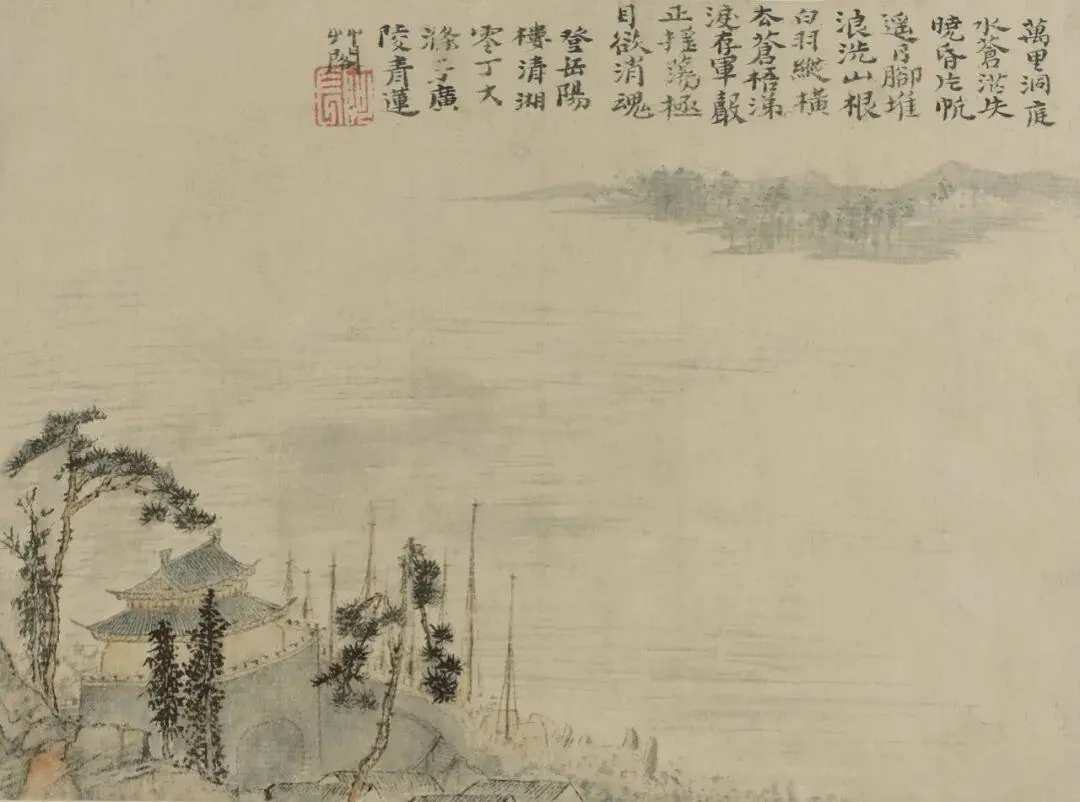 萬里洞庭
水蒼茫失
曉昏片帆
遥日腳堆
浪洗山根
白羽縱橫
去蒼梧涕
淚存軍聲
正搖蕩極
目欲消魂
登岳陽
樓清湘
零丁大
滌子廣
陵青蓮
艸閣